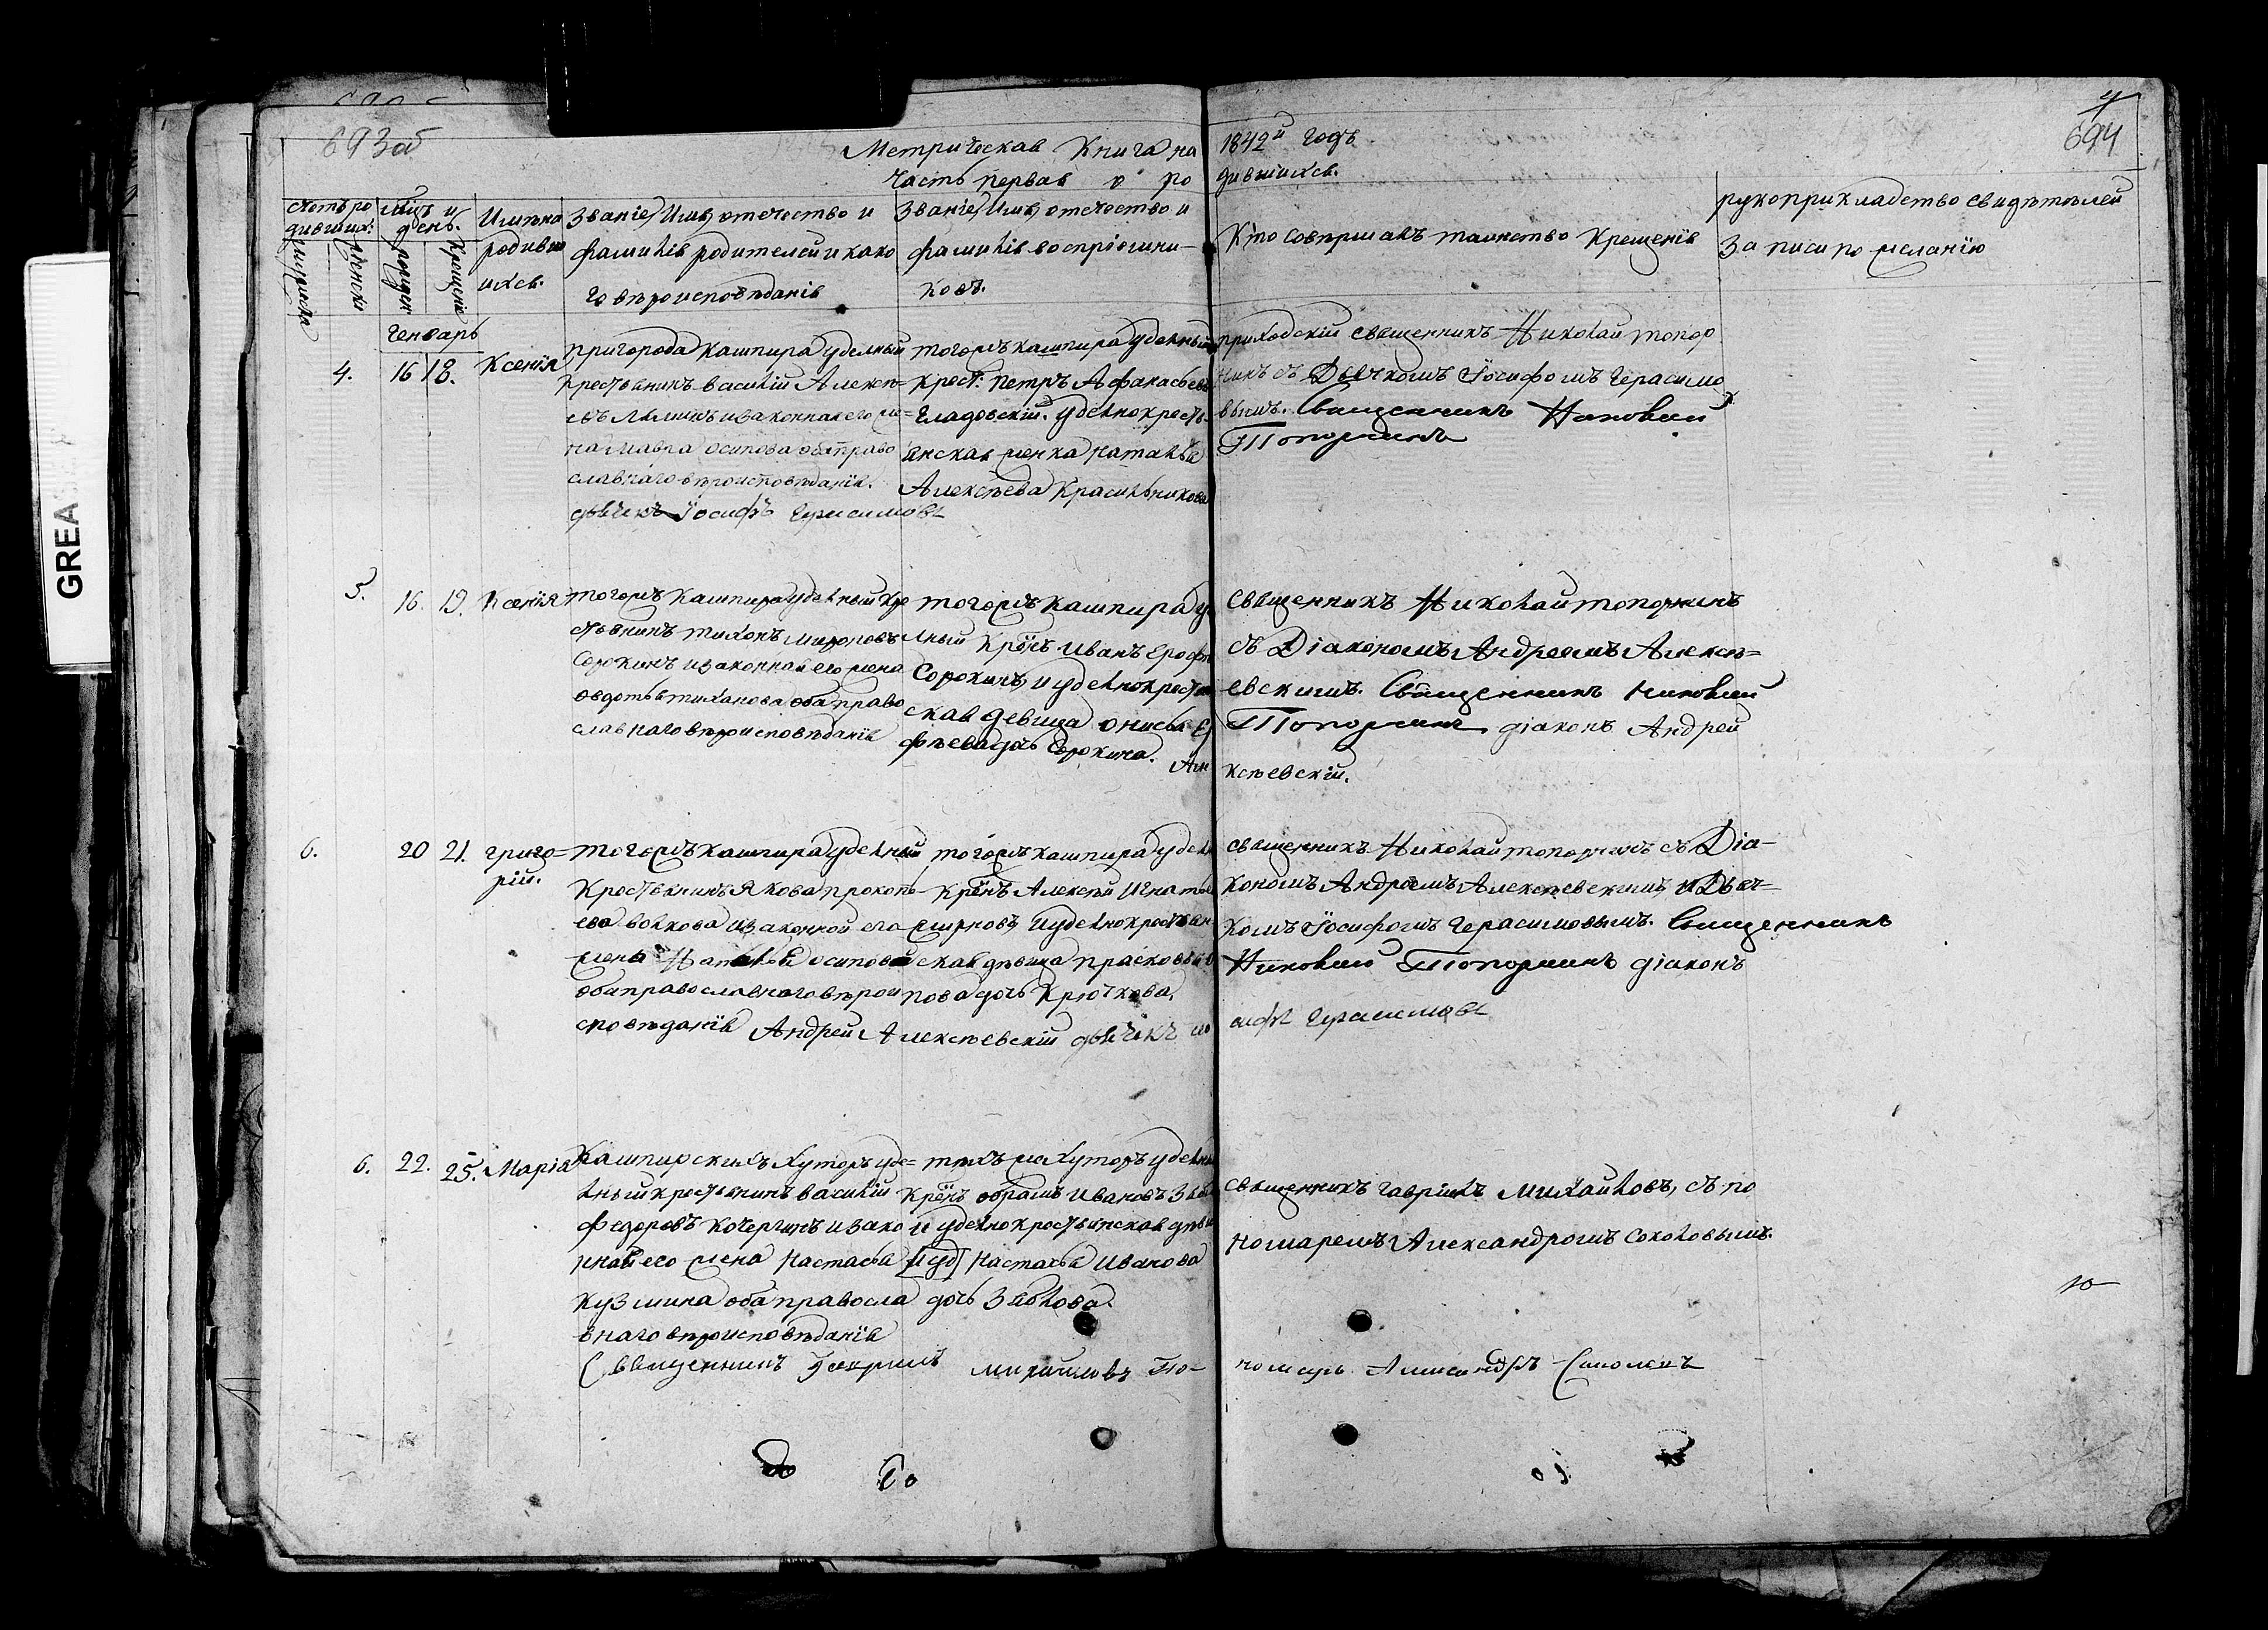 693об
694
Метрическая Книга на 1842й годъ
Часть первая о родившихся.
счетъ родивших:
мцъ и день.
Имѣна родившихся.
Званіе, Имя, отечество и фамилія родителей и какого вѣроисповѣданія
Званіе, Имя, отечество и фамилія воспріемниковъ.
Кто совершалъ таинство Крещенія
рукоприкладство свидѣтелей записи по желанію
женски
рожден
крещенія
Генварь
4. 16 18. Ксенія
пригорода Кашпира удельный
крестьянинъ василій Алексѣ=
евъ Лѣминъ и законная его же=
на Мавра осипова оба право
славнаго вѣроисповѣданія.
дьячекъ Іосифъ Герасимовъ
тогожъ кашпира удельный
крест: петръ Афанасьевъ
Гладовскій. удельнокресть-
янская женка наталья
Алексѣева Красильникова
приходскій священникъ Николай топор
нинъ съ Дьячкомъ Іосифомъ Герасимо
вымъ. Священникъ Николай
Топорнинъ
5. 16. 19. Ксенія
тогожъ Кашпира удельный кре
стьянинъ тихонъ мироновъ
Сорокинъ и законной его жена
овдотья тиханова оба право
славнаго вѣроисповѣданія
тогожъ кашпира у
льный Крнъ Иванъ Ерофѣ
Сорокинъ, и удельнокрестьян
ская девица онисья Ер
фѣева дочь Сорокина.
священникъ Николай топорнинъ
съ Діакономъ Андреемъ Алексѣ=
евскимъ. Священникъ Николай
Топорнинъ діаконъ Андрей
Алексѣевскій.
6. 20 21. григо=
рій.
тогожъ кашпира удельный
Крестьянинъ Якова прокопь-
ева волкова и законной его
жена Наталья осипова
оба православнаго вѣрои
сповѣданія Андрей Алексѣевскій дьячекъ Іо
тогожъ кашпира удель
Крнъ Алексѣй Игнатье
смирновъ, и удельнокрестьян-
ская дѣвица прасковья
пова дочь Крючкова.
священникъ Николай топорнинъ съ Діа-
кономъ Андреемъ Алексѣевскимъ, и Дьяч=
комъ Іосифомъ Герасимовымъ. Священникъ
Николай Топорнинъ діаконъ
сифъ Герасимовъ
6. 22. 25. Марія
Кашпирскихъ Хуторъ уде=
льный крестьянинъ василій
Федоровъ Кочергинъ и зако
нной его жена Настасья
Кузмина оба правосла
внаго вѣроисповѣданія
Священникъ Гавріилъ Михайловъ По-
тѣхъ же Хуторъ удельны
Крнъ обрамъ Ивановъ Зяб
и удельнокрестьянская дѣви
[уд] Настасья Иванова
дочь Зяблова.
священникъ гавріилъ Михайловъ, съ по
номаремъ Александромъ Соколовымъ.
номарь Александръ Соколовъ
10
GREA